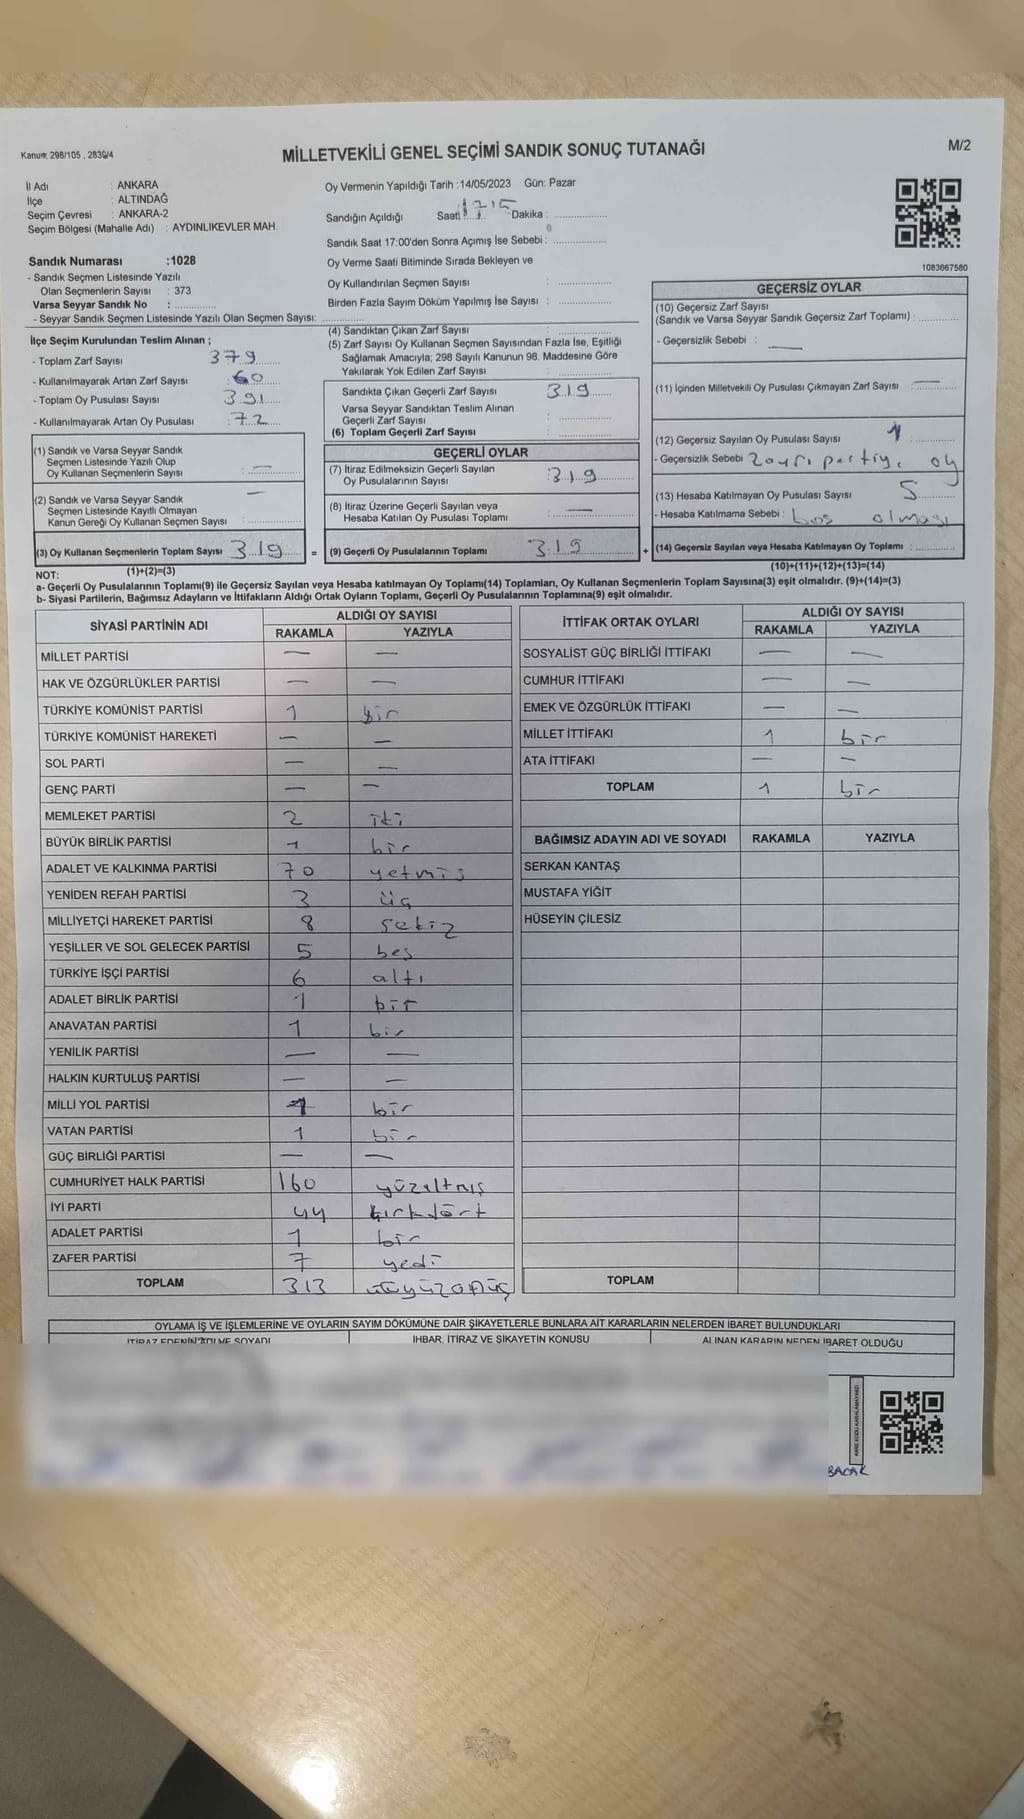 Kanun, 298/105 , 2839/4
MİLLETVEKİLİ GENEL SEÇİMİ SANDIK SONUÇ TUTANAĞI
M/2
İl Adı : ANKARA
İlçe : ALTINDAĞ
Seçim Çevresi : ANKARA-2
Seçim Bölgesi (Mahalle Adı) : AYDINLIKEVLER MAH.
Oy Vermenin Yapıldığı Tarih :14/05/2023 Gün: Pazar
Sandığın Açıldığı Saat: 1715 Dakika :
Sandık Saat 17:00'den Sonra Açımış İse Sebebi :
Oy Verme Saati Bitiminde Sırada Bekleyen ve
Oy Kullandırılan Seçmen Sayısı :
Birden Fazla Sayım Döküm Yapılmış İse Sayısı :
1083667580
Sandık Numarası :1028
- Sandık Seçmen Listesinde Yazılı
Olan Seçmenlerin Sayısı : 373
Varsa Seyyar Sandık No :
- Seyyar Sandık Seçmen Listesinde Yazılı Olan Seçmen Sayısı:
İlçe Seçim Kurulundan Teslim Alınan ;
- Toplam Zarf Sayısı 379
- Kullanılmayarak Artan Zarf Sayısı : 60
- Toplam Oy Pusulası Sayısı 391
- Kullanılmayarak Artan Oy Pusulası : 72
(1) Sandık ve Varsa Seyyar Sandık
Seçmen Listesinde Yazılı Olup
Oy Kullanan Seçmenlerin Sayısı : —
(2) Sandık ve Varsa Seyyar Sandık —
Seçmen Listesinde Kayıtlı Olmayan
Kanun Gereği Oy Kullanan Seçmen Sayısı :
(3) Oy Kullanan Seçmenlerin Toplam Sayısı 319 =
(1)+(2)=(3)
(4) Sandıktan Çıkan Zarf Sayısı :
(5) Zarf Sayısı Oy Kullanan Seçmen Sayısından Fazla İse, Eşitliği
Sağlamak Amacıyla; 298 Sayılı Kanunun 98. Maddesine Göre
Yakılarak Yok Edilen Zarf Sayısı :
Sandıkta Çıkan Geçerli Zarf Sayısı 319
Varsa Seyyar Sandıktan Teslim Alınan
Geçerli Zarf Sayısı :
(6) Toplam Geçerli Zarf Sayısı :
GEÇERLİ OYLAR
(7) İtiraz Edilmeksizin Geçerli Sayılan
Oy Pusulalarının Sayısı : 319
(8) İtiraz Üzerine Geçerli Sayılan veya
Hesaba Katılan Oy Pusulası Toplamı : —
(9) Geçerli Oy Pusulalarının Toplamı : 319 +
GEÇERSİZ OYLAR
(10) Geçersiz Zarf Sayısı
(Sandık ve Varsa Seyyar Sandık Geçersiz Zarf Toplamı) :
- Geçersizlik Sebebi : —
(11) İçinden Milletvekili Oy Pusulası Çıkmayan Zarf Sayısı : —
(12) Geçersiz Sayılan Oy Pusulası Sayısı : 1
- Geçersizlik Sebebi partiye oy
(13) Hesaba Katılmayan Oy Pusulası Sayısı 5
- Hesaba Katılmama Sebebi : boş olması
(14) Geçersiz Sayılan veya Hesaba Katılmayan Oy Toplamı :
(10)+(11)+(12)+(13)=(14)
NOT:
a- Geçerli Oy Pusulalarının Toplamı(9) ile Geçersiz Sayılan veya Hesaba katılmayan Oy Toplamı(14) Toplamları, Oy Kullanan Seçmenlerin Toplam Sayısına(3) eşit olmalıdır. (9)+(14)=(3)
b- Siyasi Partilerin, Bağımsız Adayların ve İttifakların Aldığı Ortak Oyların Toplamı, Geçerli Oy Pusulalarının Toplamına(9) eşit olmalıdır.
SİYASİ PARTİNİN ADI ALDIĞI OY SAYISI
RAKAMLA YAZIYLA
MİLLET PARTİSİ — —
HAK VE ÖZGÜRLÜKLER PARTİSİ — —
TÜRKİYE KOMÜNİST PARTİSİ 1 bir
TÜRKİYE KOMÜNİST HAREKETİ — —
SOL PARTİ — —
GENÇ PARTİ — —
MEMLEKET PARTİSİ 2 iki
BÜYÜK BİRLİK PARTİSİ 1 bir
ADALET VE KALKINMA PARTİSİ 70 yetmiş
YENİDEN REFAH PARTİSİ 3 üç
MİLLİYETÇİ HAREKET PARTİSİ 8 sekiz
YEŞİLLER VE SOL GELECEK PARTİSİ 5 beş
TÜRKİYE İŞÇİ PARTİSİ 6 altı
ADALET BİRLİK PARTİSİ 1 bir
ANAVATAN PARTİSİ 1 bir
YENİLİK PARTİSİ — —
HALKIN KURTULUŞ PARTİSİ — —
MİLLİ YOL PARTİSİ 1 bir
VATAN PARTİSİ 1 bir
GÜÇ BİRLİĞİ PARTİSİ — —
CUMHURİYET HALK PARTİSİ 160 yüzaltmış
İYİ PARTİ 44 kırkdört
ADALET PARTİSİ 1 bir
ZAFER PARTİSİ 7 yedi
TOPLAM 313 üçyüzonüç
İTTİFAK ORTAK OYLARI ALDIĞI OY SAYISI
RAKAMLA YAZIYLA
SOSYALİST GÜÇ BİRLİĞİ İTTİFAKI — —
CUMHUR İTTİFAKI — —
EMEK VE ÖZGÜRLÜK İTTİFAKI — —
MİLLET İTTİFAKI 1 bir
ATA İTTİFAKI — —
TOPLAM 1 bir
BAĞIMSIZ ADAYIN ADI VE SOYADI RAKAMLA YAZIYLA
SERKAN KANTAŞ
MUSTAFA YİĞİT
HÜSEYİN ÇİLESİZ
TOPLAM
OYLAMA İŞ VE İŞLEMLERİNE VE OYLARIN SAYIM DÖKÜMÜNE DAİR ŞİKAYETLERLE BUNLARA AİT KARARLARIN NELERDEN İBARET BULUNDUKLARI
İTİRAZ EDENİN ADI VE SOYADI İHBAR, İTİRAZ VE ŞİKAYETİN KONUSU ALINAN KARARIN NEDEN İBARET OLDUĞU
KARE KODU KARALAMAYINIZ!
BACAK